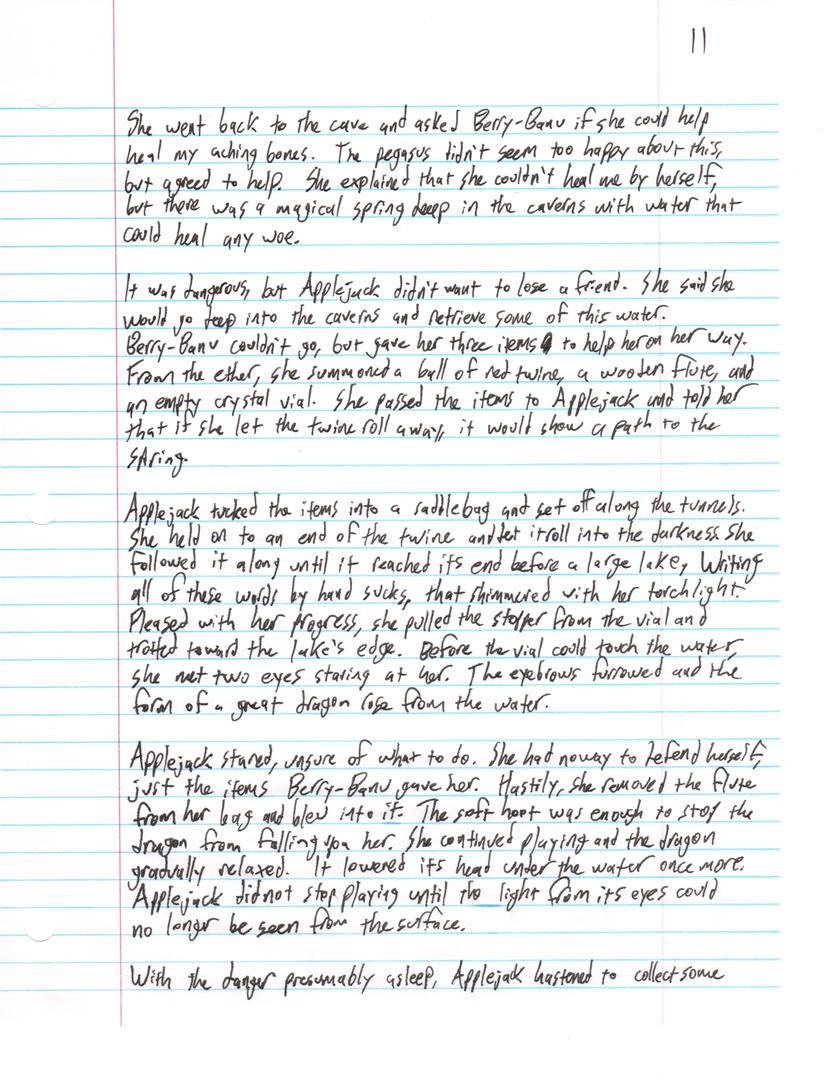 11
She went back to the cave and asked Berry-Banu if she could help
heal my aching bones. The pegasus didn't seem too happy about this,
but agreed to help. She explained that she couldn't heal me by herself,
but there was a magical spring deep in the caverns with water that
could heal any woe.
It was dangerous, but Applejack didn't want to lose a friend. She said she
would go deep into the caverns and retrieve some of this water.
Berry-Banu couldn't go, but gave her three items to help her on her way.
From the ether, she summoned a ball of red twine, a wooden flute, and
an empty crystal vial. She passed the items to Applejack and told her
that if she let the twine roll away, it would show a path to the
spring.
Applejack tucked the items into a saddlebag and set off along the tunnels.
She held on to an end of the twine and let it roll into the darkness. She
followed it along until it reached its end before a large lake, Writing
all of these words by hand sucks, that shimmered with her torchlight.
Pleased with her progress, she pulled the stopper from the vial and
trotted toward the lake's edge. Before the vial could touch the water,
she met two eyes staring at her. The eyebrows furrowed and the
form of a great dragon rose from the water.
Applejack stared, unsure of what to do. She had no way to defend herself,
just the items Berry-Banu gave her. Hastily, she removed the flute
from her bag and blew into it. The soft hoot was enough to stop the
dragon from falling upon her. She continued playing and the dragon
gradually relaxed. It lowered its head under the water once more.
Applejack did not stop playing until the light from its eyes could
no longer be seen from the surface.
With the danger presumably asleep, Applejack hastened to collect some